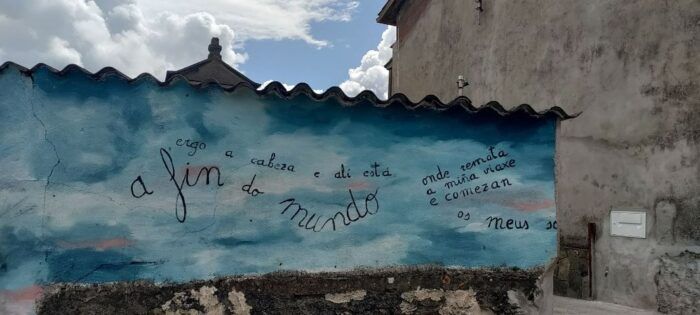 ergo a cabeza e alí está
a fin do mundo
onde remata
a miña viaxe
e comezan
os meus